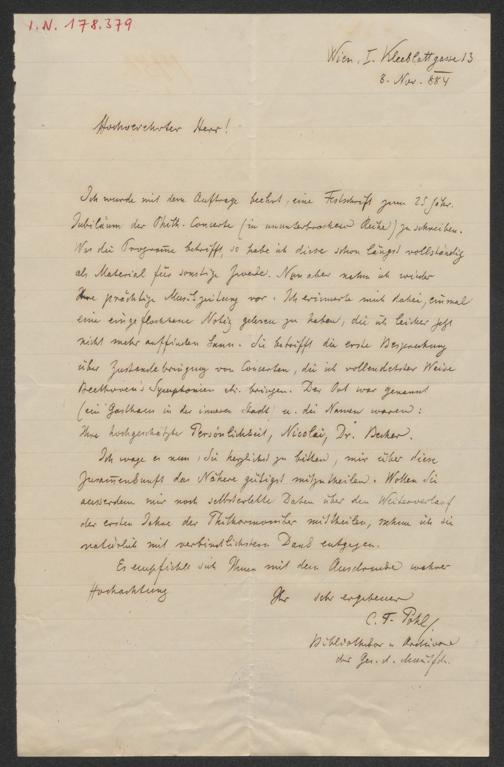 I.N. 178.379
Wien, I. Kleeblattgasse 13
8. Nov. 884
Hochverehrter Herr!
Ich wurde mit dem Auftrage beehrt, eine Festschrift zum 25 jähr.
Jubiläum der Philh. Concerte (in ununterbrochener Reihe) zu schreiben.
Was die Programme betrifft, so habe ich diese schon längst vollständig
als Material für sonstige Zwecke. Nun aber nahm ich wieder
Ihre prächtige Musikzeitung vor. Ich erinnerte mich dabei, einmal
eine eingeflochtene Notiz gelesen zu haben, die ich leider jetzt
nicht mehr auffinden kann. Sie betrifft die erste Besprechung
über Zustandebringung von Concerten, die in vollendetster Weise
Beethoven's Symphonien etc. bringen. Der Ort war genannt
(ein Gasthaus in der inneren Stadt) u. die Namen waren:
Ihre hochgeschätzte Persönlichkeit, Nicolai, Dr. Becher.
Ich wage es nun, Sie herzlichst zu bitten, mir über diese
Zusammenkunft das Nähere gütigst mitzutheilen. Wollen Sie
ausserdem mir noch selbsterlebte Daten über den Weiterverlauf
der ersten Jahre der Philharmoniker mittheilen, nehme ich sie
natürlich mit verbindlichstem Dank entgegen.
Es empfiehlt sich Ihnen mit dem Ausdrucke wahrer
Hochachtung
Ihr sehr ergebener
C. F. Pohl
Bibliothekar u. Archivar
der Ges. d. Musikfr.